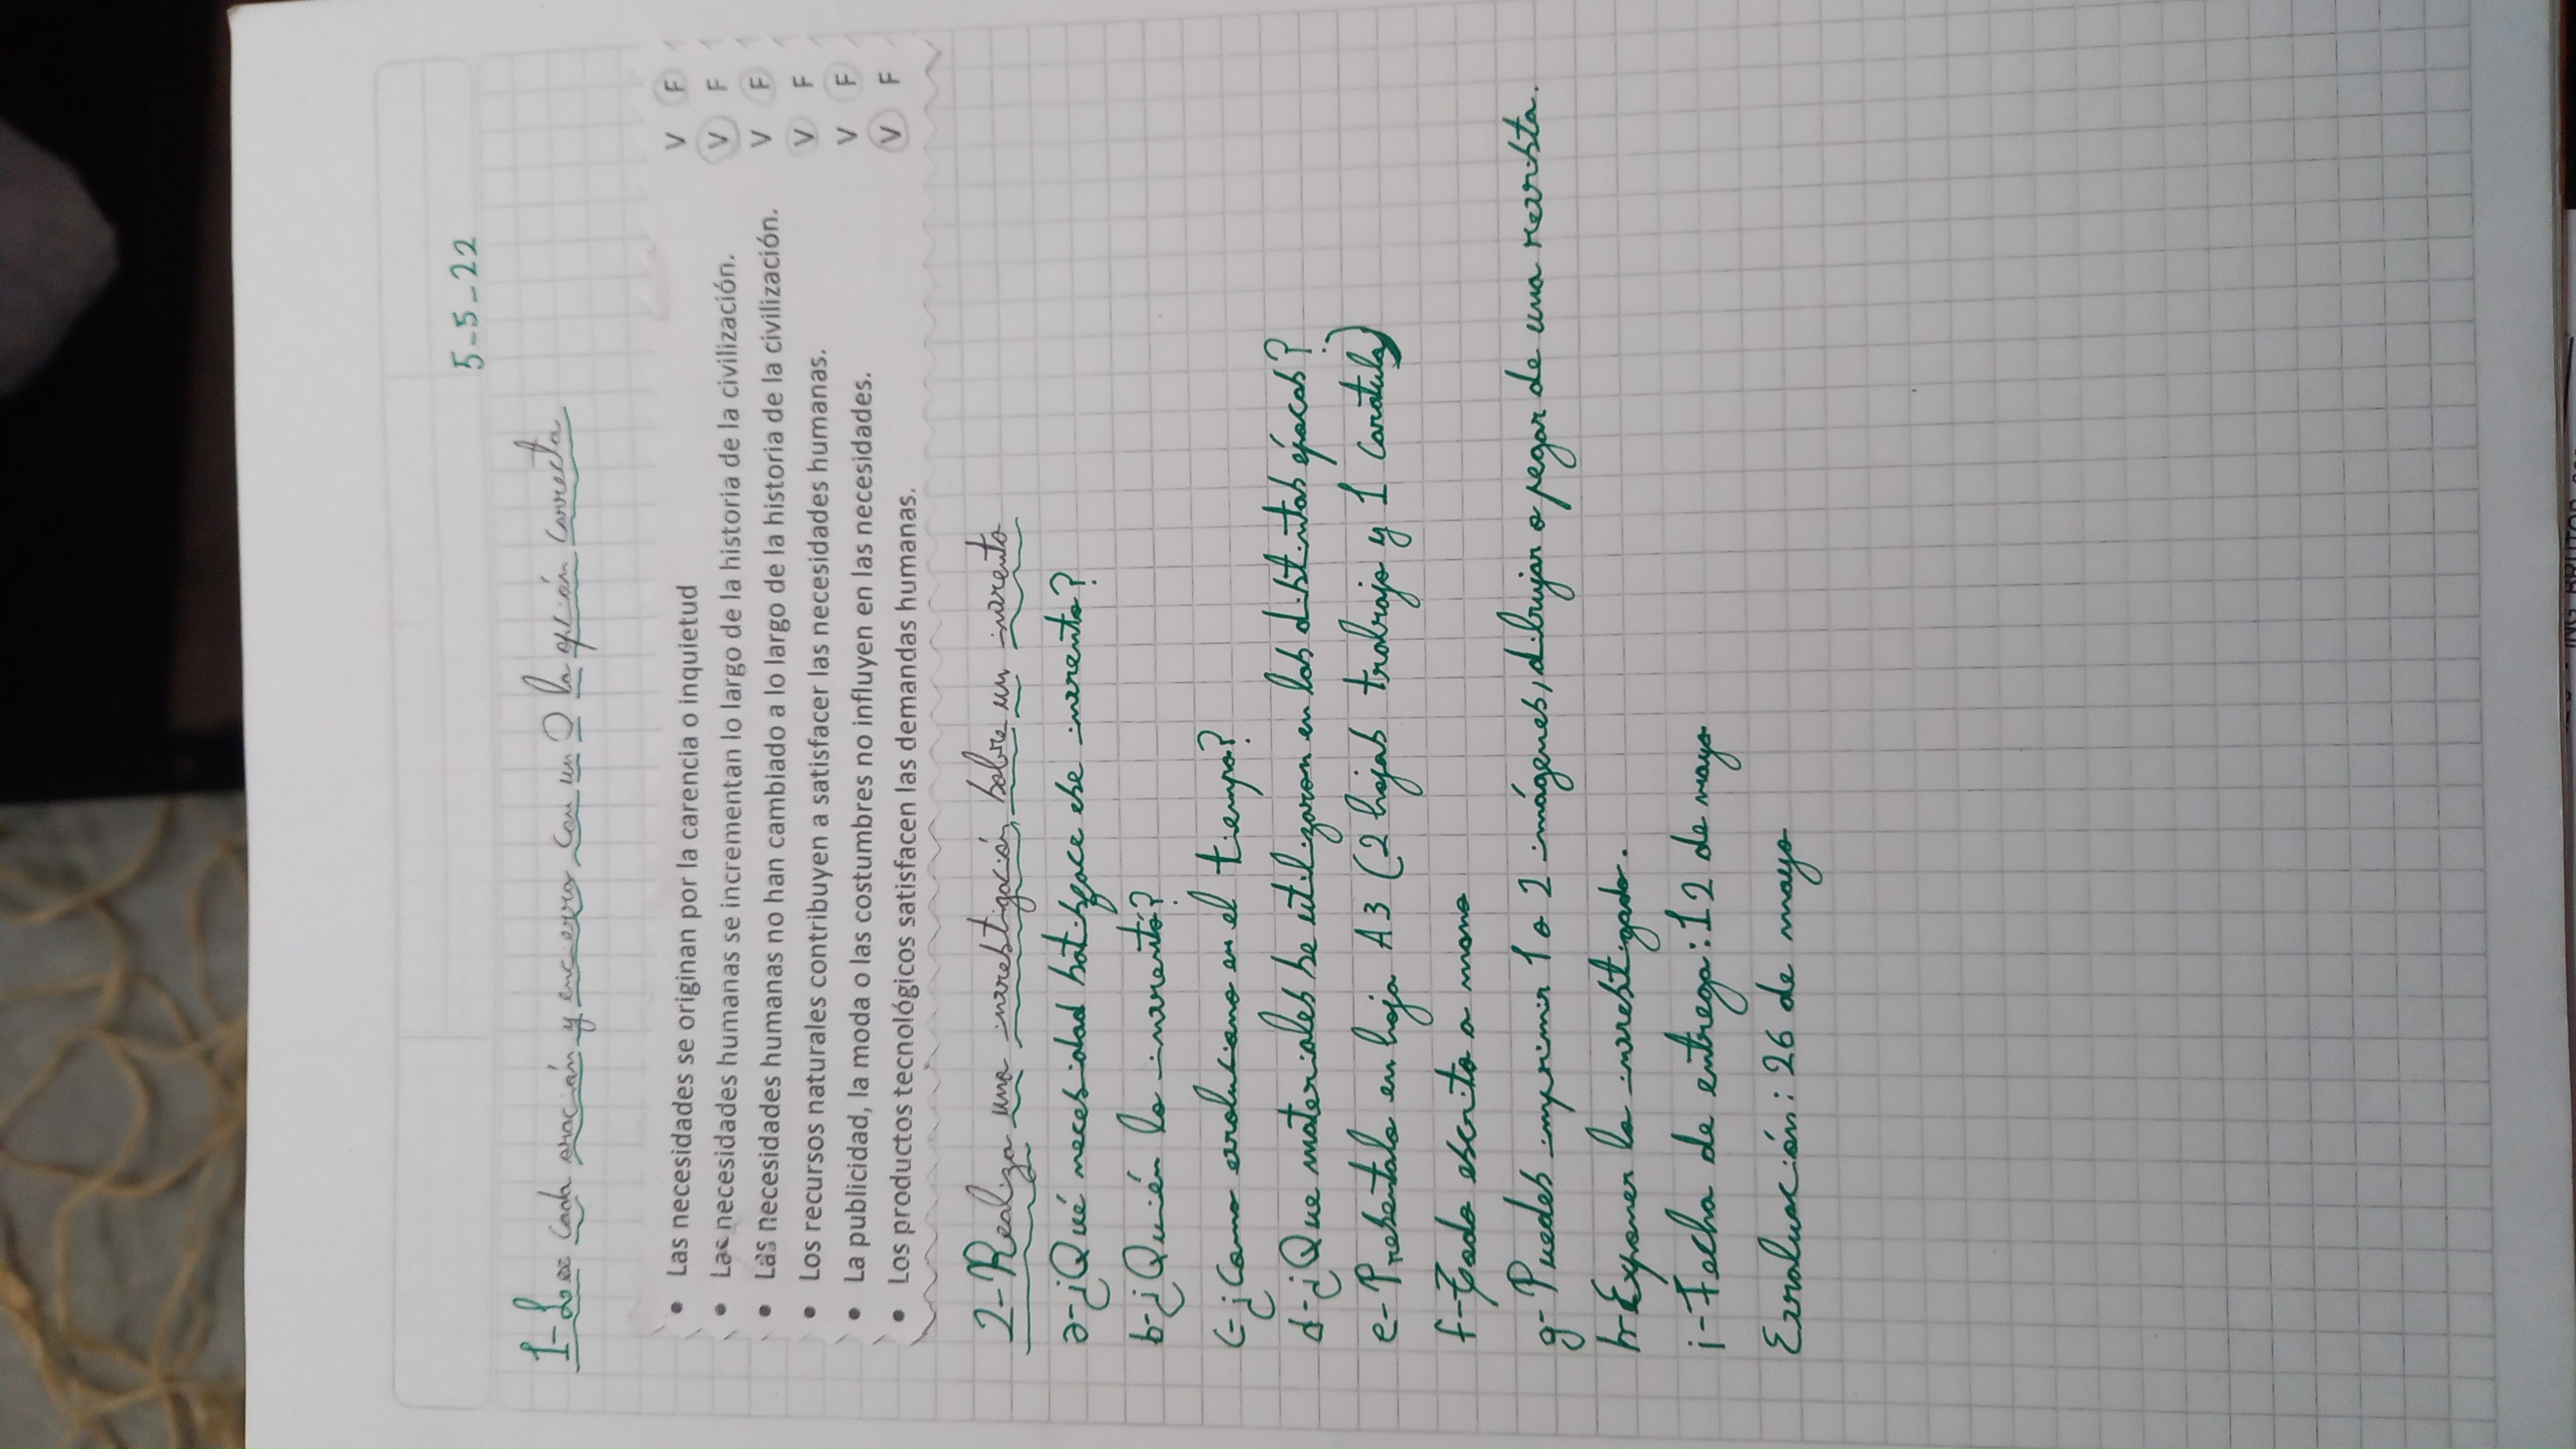 5-5-22
1-Lee cada oración y encerra con un O la opción correcta
• Las necesidades se originan por la carencia o inquietud V F
• Las necesidades humanas se incrementan lo largo de la historia de la civilización. V F
• Las necesidades humanas no han cambiado a lo largo de la historia de la civilización. V F
• Los recursos naturales contribuyen a satisfacer las necesidades humanas. V F
• La publicidad, la moda o las costumbres no influyen en las necesidades. V F
• Los productos tecnológicos satisfacen las demandas humanas. V F
2-Realiza una investigación sobre un invento
a-¿Qué necesidad satisface ese invento?
b-¿Quién lo inventó?
c-¿Como evoluciono en el tiempo?
d-¿Que materiales se utilizaron en las distintas épocas?
e-Presentala en hoja A3 (2 hojas trabajo y 1 caratula)
f-Todo escrito a mano
g-Puedes imprimir 1 o 2 imágenes, dibujar o pegar de una revista.
h-Exponer lo investigado.
i-Fecha de entrega: 12 de mayo
Evaluación: 26 de mayo